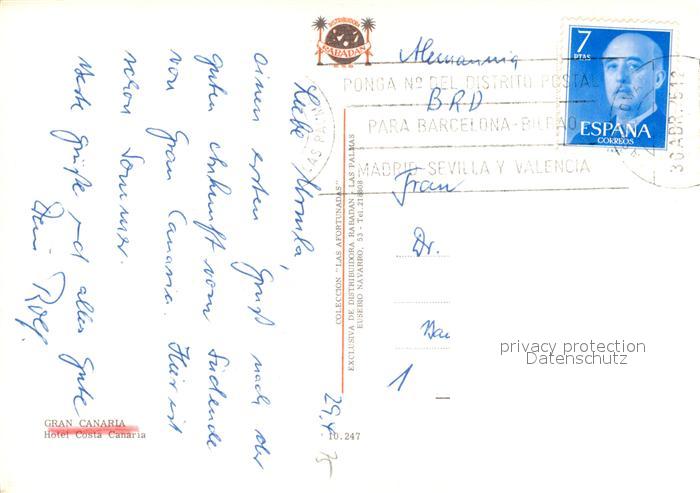 Liebe Ursula,
einen ersten Gruß nach der
guten Ankunft vom Südende
von Gran Canaria. Hier ist
schon Sommer.
Beste Grüße und alles Gute
Dein Rolf.
29.4.75
GRAN CANARIA
Hotel Costa Canaria
DISTRIBUIDORA
RABADAN
COLECCION "LAS AFORTUNADAS"
EXCLUSIVA DE DISTRIBUIDORA RABADAN - LAS PALMAS
EUSEBIO NAVARRO, 53 - Tel. 218808
10.247
Alemannia
BRD
Frau
Dr.
1
PONGA Nº DEL DISTRITO POSTAL
PARA BARCELONA-BILBAO
MADRID-SEVILLA Y VALENCIA
30 ABR. 75
7
PTAS
ESPAÑA
CORREOS
privacy protection
Datenschutz